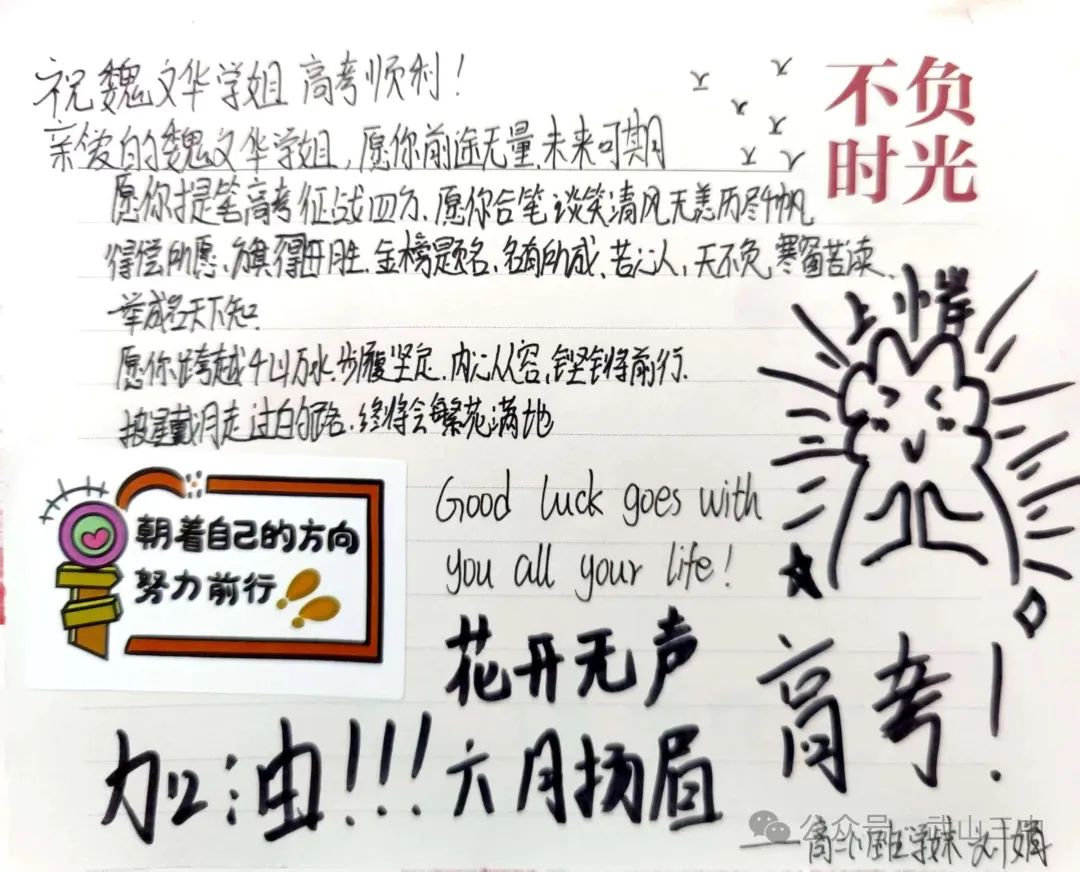 祝魏文华学姐高考顺利!
不负
时光
亲爱的魏文华学姐,愿你前途无量、未来可期
愿你提笔高考征战四方、愿你合笔谈笑清风无恙历尽千帆
得偿所愿、旗得开胜、金榜题名、名有所成、苦心人,天不负,寒窗苦读、
一举成名天下知.
愿你跨越千山万水、步履坚定、内心从容,铿锵前行.
披星戴月走过的路、终将会繁花满地
上岸
朝着自己的方向
努力前行
Good luck goes with
you all your life!
花开无声
六月扬眉
加油!!!
高考!
公众号 武山三中
——高一 班学妹